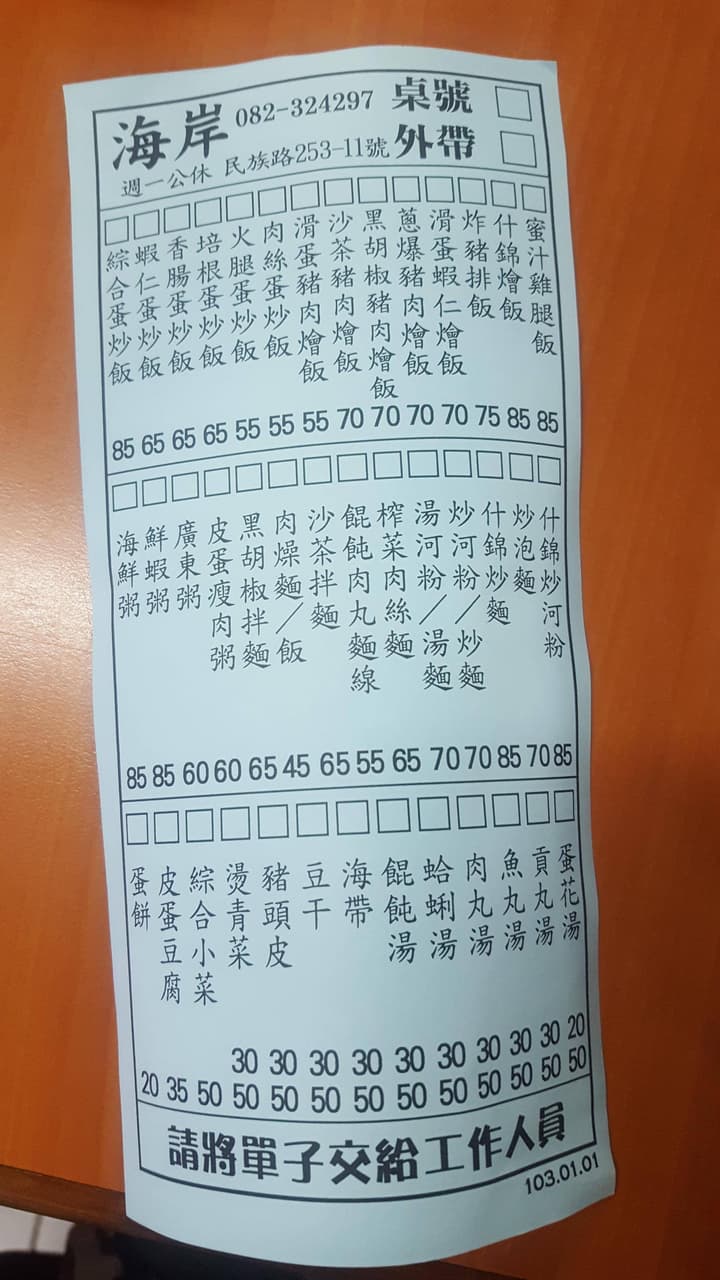 海岸 082-324297 桌號
週一公休 民族路253-11號 外帶
綜合蛋炒飯
蝦仁蛋炒飯
香腸蛋炒飯
培根蛋炒飯
火腿蛋炒飯
肉絲蛋炒飯
滑蛋豬肉燴飯
沙茶豬肉燴飯
黑胡椒豬肉燴飯
蔥爆豬肉燴飯
滑蛋蝦仁燴飯
炸豬排飯
什錦燴飯
蜜汁雞腿飯
85 65 65 65 55 55 55 70 70 70 70 75 85 85
海鮮粥
鮮蝦粥
廣東粥
皮蛋瘦肉粥
黑胡椒拌麵
肉燥麵／飯
沙茶拌麵
餛飩肉丸麵線
榨菜肉絲麵
湯河粉／湯麵
炒河粉／炒麵
什錦炒麵
炒泡麵
什錦炒河粉
85 85 60 60 65 45 65 55 65 70 70 85 70 85
蛋餅
皮蛋豆腐
綜合小菜
燙青菜
豬頭皮
豆干
海帶
餛飩湯
蛤蜊湯
肉丸湯
魚丸湯
貢丸湯
蛋花湯
30 30 30 30 30 30 30 30 30 20
20 35 50 50 50 50 50 50 50 50 50 50 50
請將單子交給工作人員
103.01.01